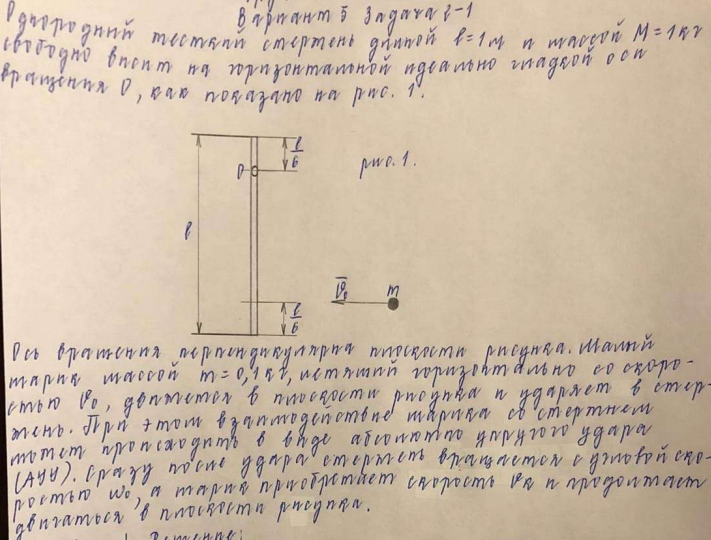 Вариант 5 Задача 2-1
Однородный жесткий стержень длиной l=1м и массой M=1кг
свободно висит на горизонтальной идеально гладкой оси
вращения O, как показано на рис. 1.
l/6
O
рис. 1.
l
V̅₀
m
l/6
Ось вращения перпендикулярна плоскости рисунка. Малый
шарик массой m=0,1кг, летящий горизонтально со скоро-
стью V₀, движется в плоскости рисунка и ударяет в стер-
жень. При этом взаимодействие шарика со стержнем
может происходить в виде абсолютно упругого удара
(АУУ). Сразу после удара стержень вращается с угловой ско-
ростью ω₀, а шарик приобретает скорость Vк и продолжает
двигаться в плоскости рисунка.
Решение: